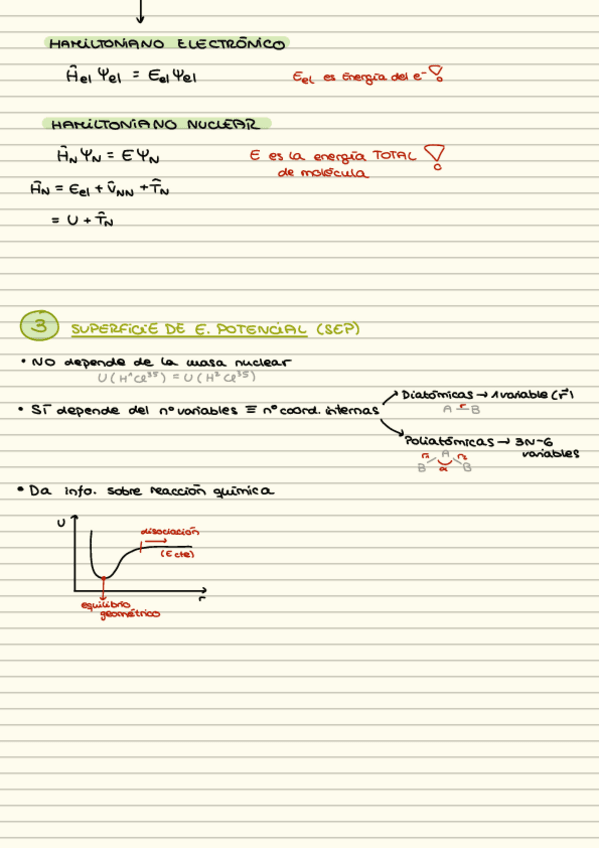 HAMILTONIANO ELECTRÓNICO
Ĥel Ψel = Eel Ψel
Eel es Energía del e⁻ !
HAMILTONIANO NUCLEAR
ĤN ΨN = E ΨN
E es la energía TOTAL !
de molécula
ĤN = Eel + V̂NN + T̂N
= U + T̂N
3 SUPERFICIE DE E. POTENCIAL (SEP)
• NO depende de la masa nuclear
U(H¹Cl³⁵) = U(H²Cl³⁵)
Diatómicas → 1 variable (r⃗)
• SÍ depende del nº variables ≡ nº coord. internas
A r B
Poliatómicas → 3N-6
variables
r₁ A r₂
B α B
• Da info. sobre reacción química
U
disociación
(E cte)
r
equilibrio
geométrico